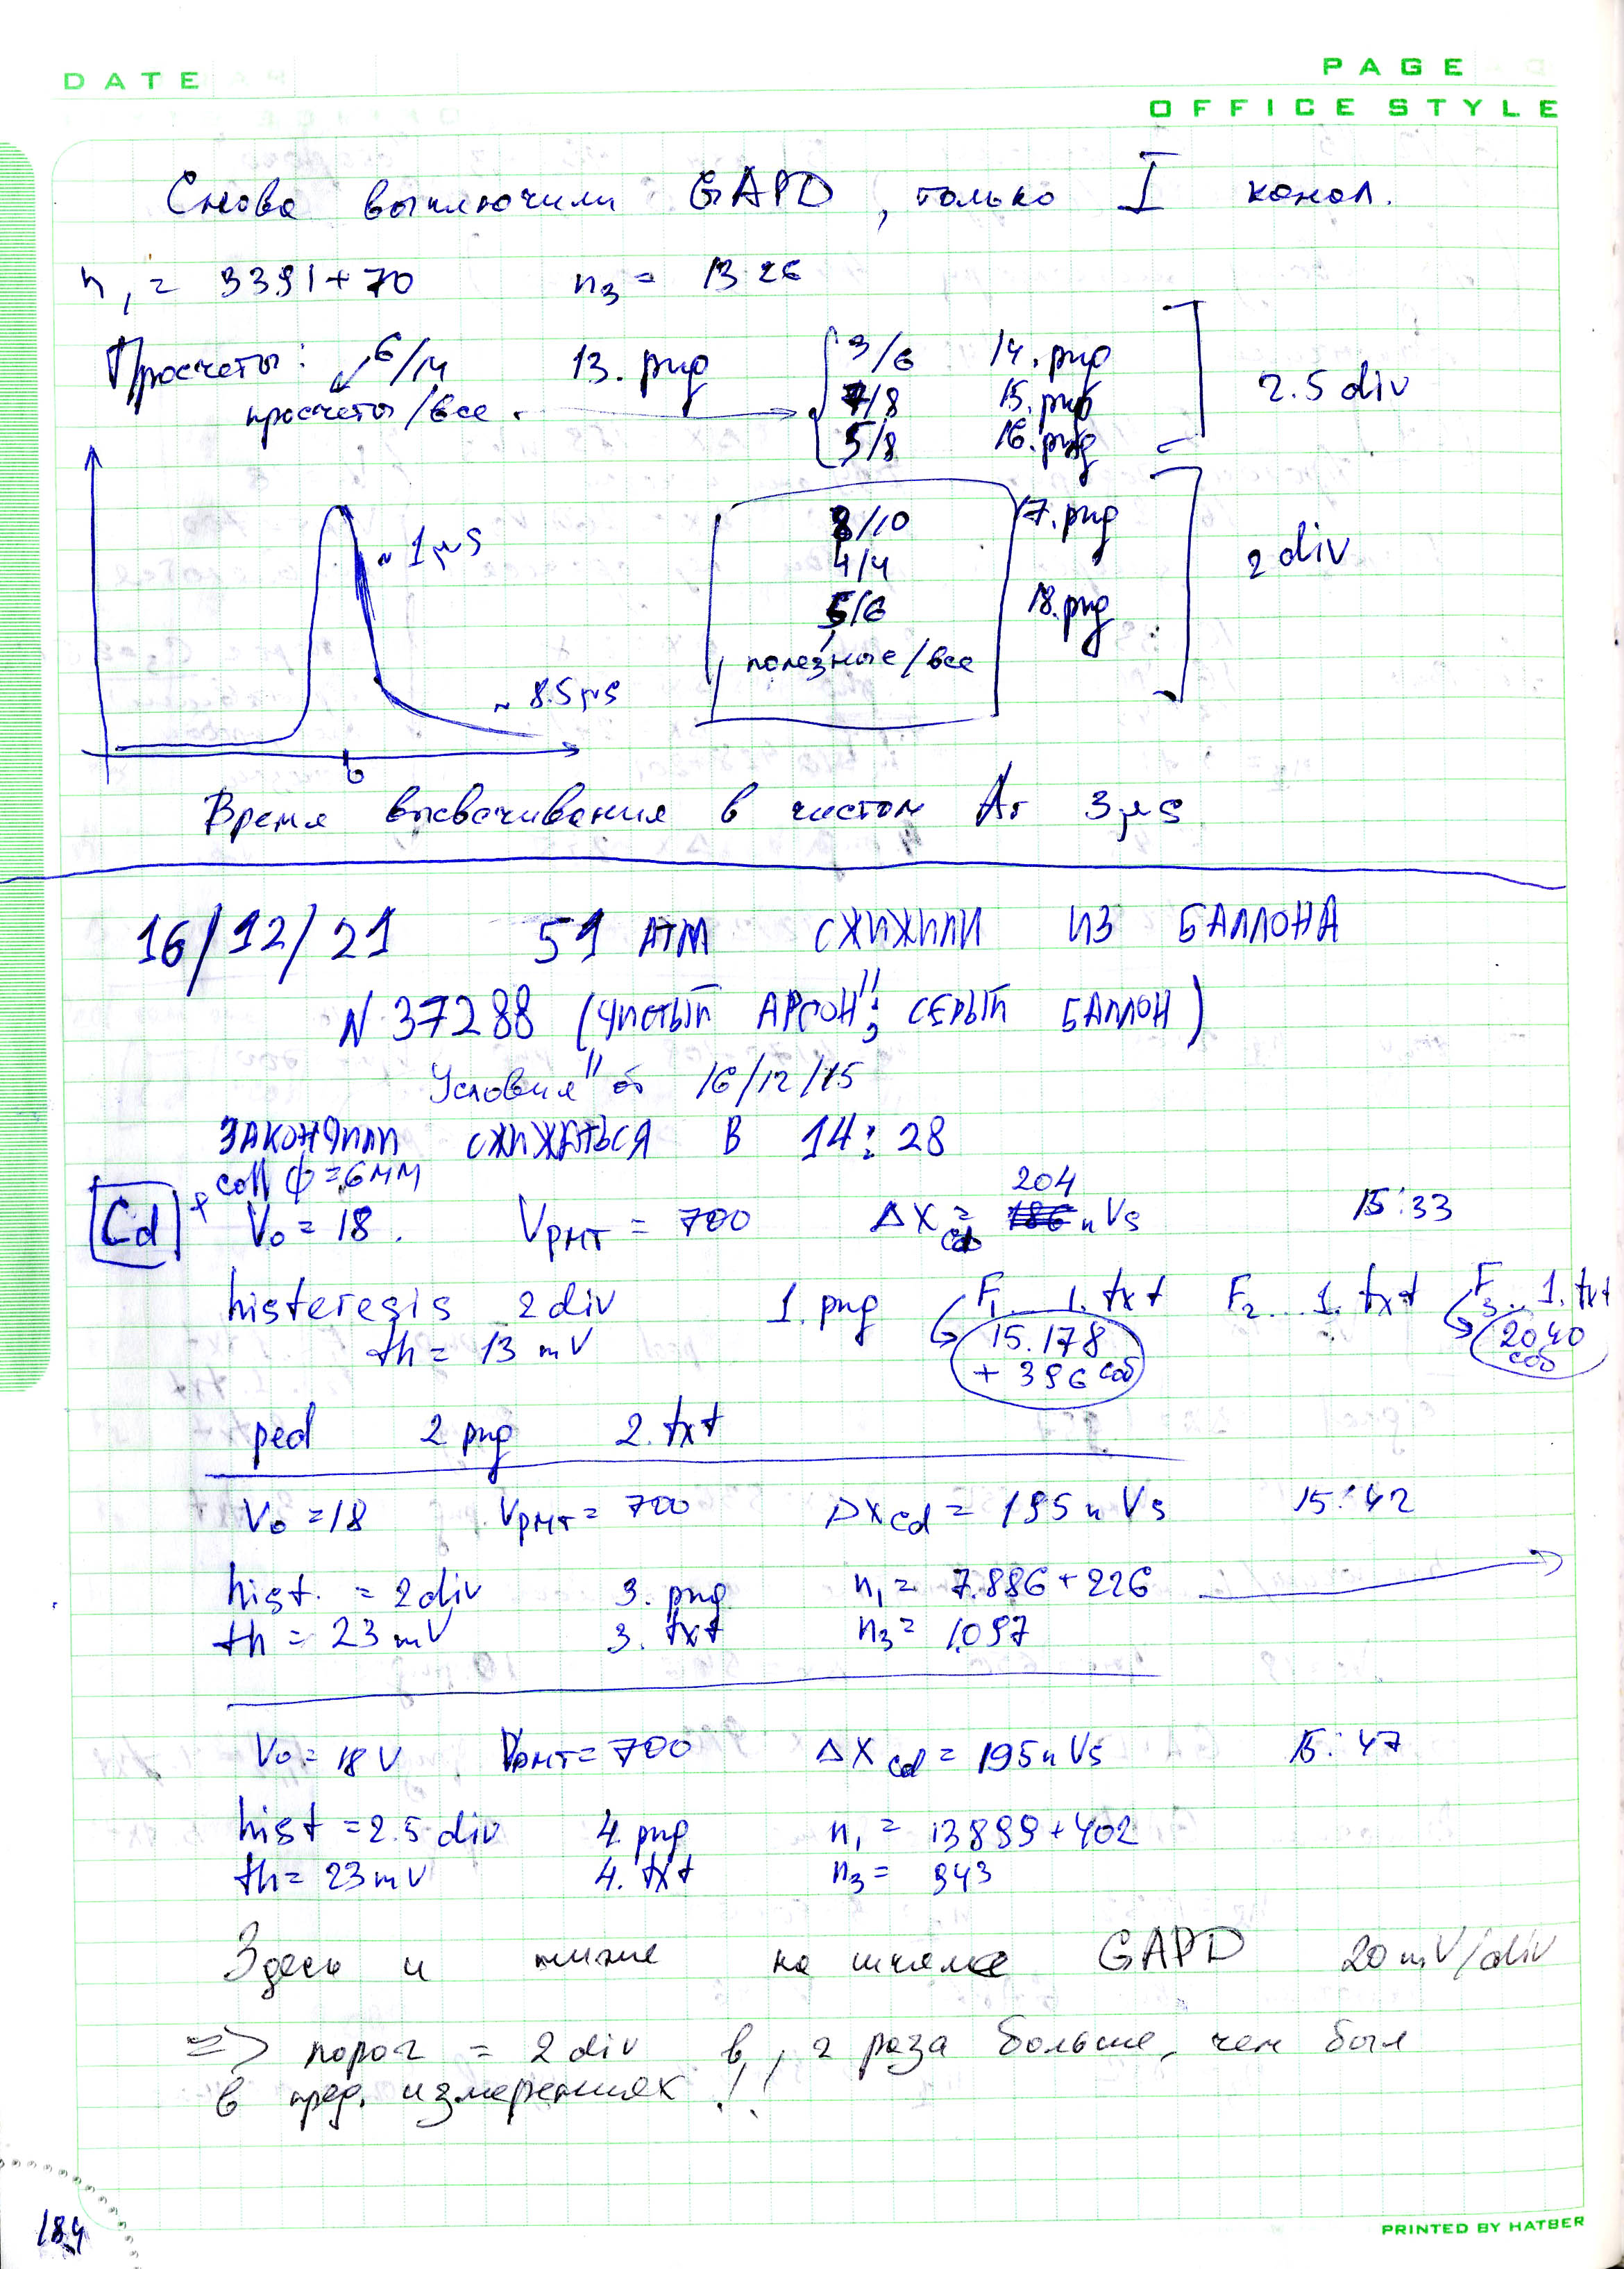 DATE
PAGE
OFFICE STYLE
Снова выключили GAPD, только I канал.
n₁ = 3391+70 n₃ = 1326
Просчеты: 6/14 13.png 3/6 14.png
просчеты/все 7/8 15.png 2.5 div
5/8 16.png
8/10 17.png
~1μs 4/4 2 div
5/6 18.png
полезные/все
~8.5μs
Время высвечивания в чистом Ar 3μs
16/12/21 51 АТМ СЖИЖИЛИ ИЗ БАЛЛОНА
N 37288 (ЧИСТЫЙ АРГОН"; СЕРЫЙ БАЛЛОН)
Условия" от 16/12/15
ЗАКОНЧИЛИ СЖИЖАТЬСЯ В 14:28
Cd + coll ϕ=6мм
V₀ = 18. V_PMT = 700 ΔX_Cd = 204 nVs 15:33
histeresis 2div 1.png F₁...1.txt F₂...1.txt F₃...1.txt
th = 13 mV 15.178 + 396 соб 2040 соб
ped 2 png 2.txt
V₀ = 18 V_PMT = 700 ΔX_Cd = 195 nVs 15:42
hist. = 2div 3.png n₁ = 7.886+226
th = 23 mV 3.txt n₃ = 1.097
V₀ = 18V V_PMT = 700 ΔX_Cd = 195nVs 15:47
hist = 2.5 div 4.png n₁ = 13899+402
th = 23mV 4.txt n₃ = 943
Здесь и ниже на шкале GAPD 20 mV/div
=> порог = 2div в 2 раза больше, чем был
в пред. измерениях !!
184
PRINTED BY HATBER